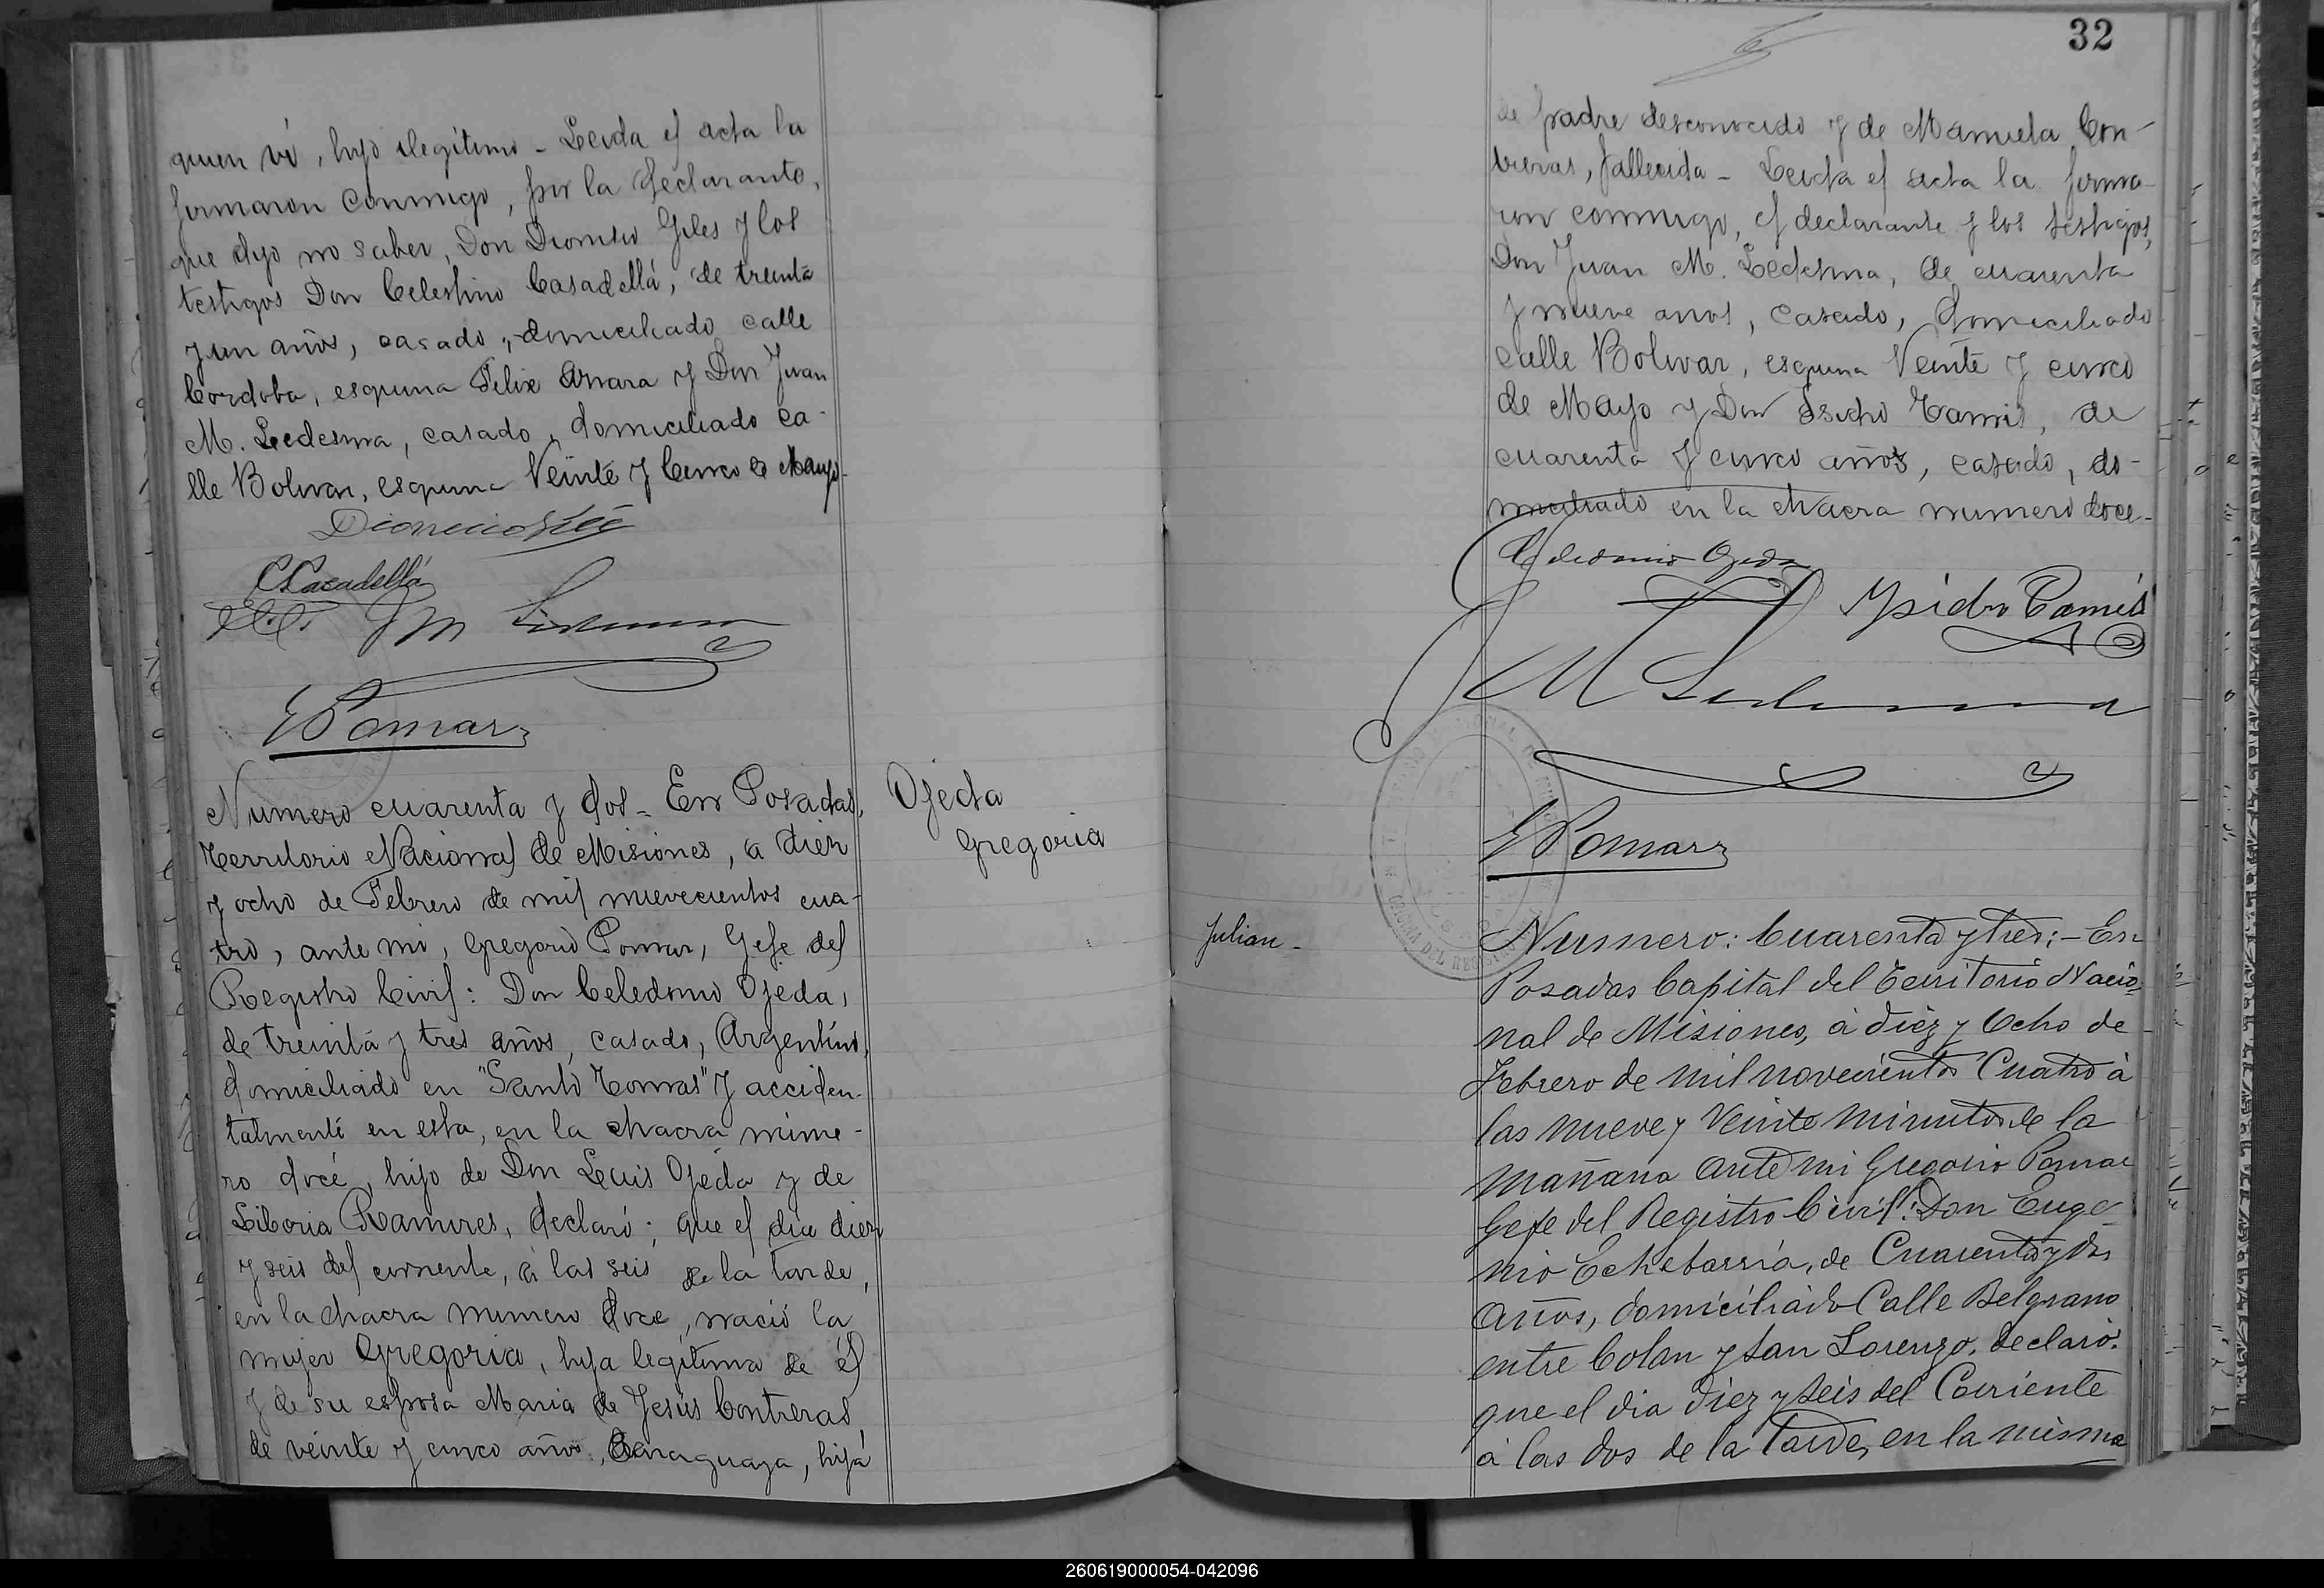 quien vi, hijo ilegitimo - Leida el acta la
firmaron conmigo, por la declarante,
que dijo no saber, Don Dionisio Giles y los
testigos Don Celestino Casadellá, de treinta
y un años, casado, domiciliado calle
Cordoba, esquina Felix Azara y Don Juan
M. Ledesma, casado, domiciliado ca-
lle Bolivar, esquina Veinte y Cinco de Mayo-
C. Casadellá
J M Ledesma
G Pomar
Numero cuarenta y dos - En Posadas,
Territorio Nacional de Misiones, a diez
y ocho de Febrero de mil nuevecientos cua-
tro, ante mi, Gregorio Pomar, Gefe del
Registro Civil: Don Celedonio Ojeda,
de treinta y tres años, casado, Argentino,
domiciliado en "Santo Tomas" y acciden-
talmente en esta, en la chacra nume-
ro doce, hijo de Don Luis Ojeda y de
Liboria Ramires, declaró; que el dia diez
y seis del corriente, á las seis de la tarde,
en la chacra numero doce, nació la
mujer Gregoria, hija legitima de él
y de su esposa Maria de Jesús Contreras,
de veinte y cinco años, Paraguaya, hija
Ojeda
Gregoria
32
de padre desconocido y de Manuela Con-
treras, fallecida - Leida el acta la firma-
ron conmigo, el declarante y los testigos,
Don Juan M. Ledesma, de cuarenta
y nueve anos, casado, domiciliado
calle Bolivar, esquina Veinte y cinco
de Mayo y Don Isidro Tamis, de
cuarenta y cinco años, casado, do-
miciliado en la chacra numero doce-
Celedonio Ojeda
Ysidro Tamis
J M Ledesma
G Pomar
Julian -
Numero: Cuarenta y tres; - En
Posadas Capital del Territorio Nacio-
nal de Misiones, á diez y Ocho de
Febrero de mil novecientos Cuatro à
las nueve y Veinte minutos de la
mañana ante mi Gregorio Pomar
Gefe del Registro Civil: Don Euge-
nio Echebarría, de Cuarenta y dos
años, domiciliado Calle Belgrano
entre Colon y San Lorenzo, declaró:
que el dia diez y seis del Corriente
à las dos de la tarde, en la misma
260619000054-042096